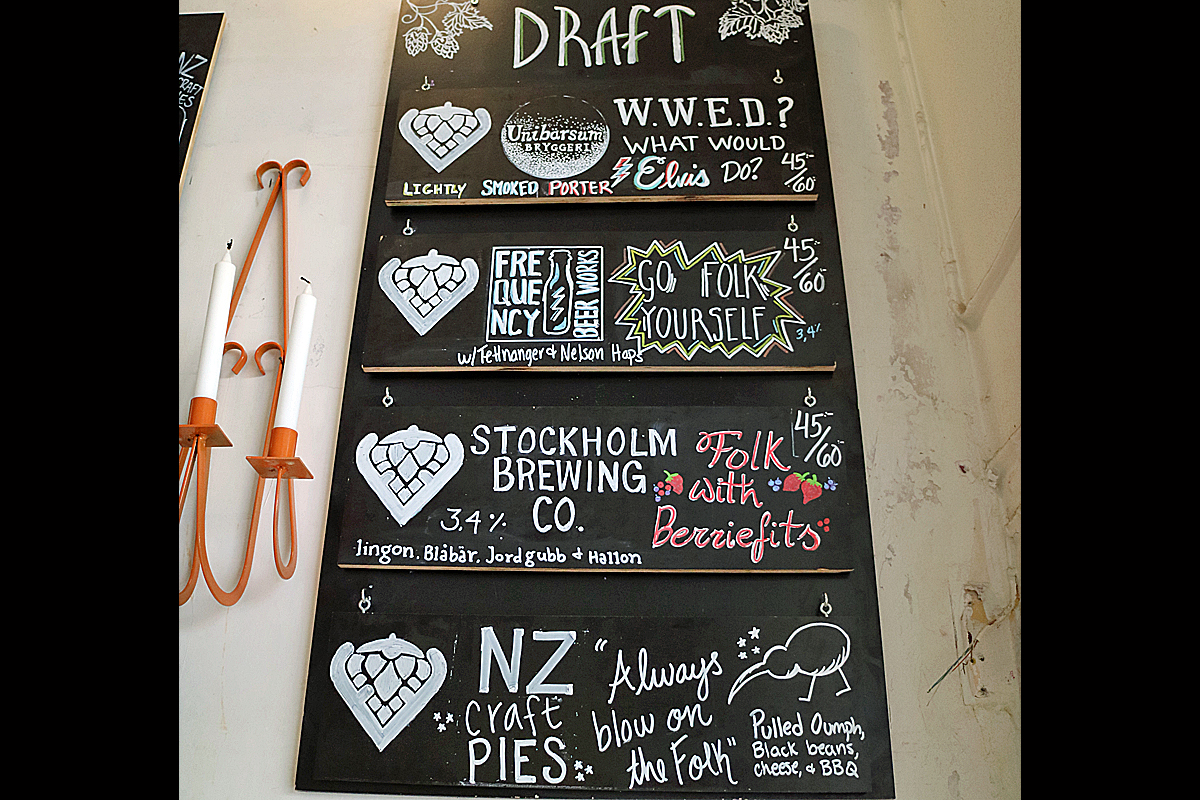 DRAFT
Unibärsum
BRYGGERI
W.W.E.D.?
WHAT WOULD
Elvis DO?
45:-/60:-
LIGHTLY SMOKED PORTER
FRE
QUE
NCY
BEER WORKS
GO FOLK
YOURSELF
45:-/60:-
3,4%
w/Tettnanger & Nelson Hops
STOCKHOLM
BREWING
CO.
3,4%
Folk
with
Berriefits
45:-/60:-
lingon. Blåbär, Jordgubb & Hallon
NZ
craft
PIES
"Always
blow on
the Folk"
Pulled Oumph,
Black beans,
cheese, & BBQ
NZ
CRAFT
IES